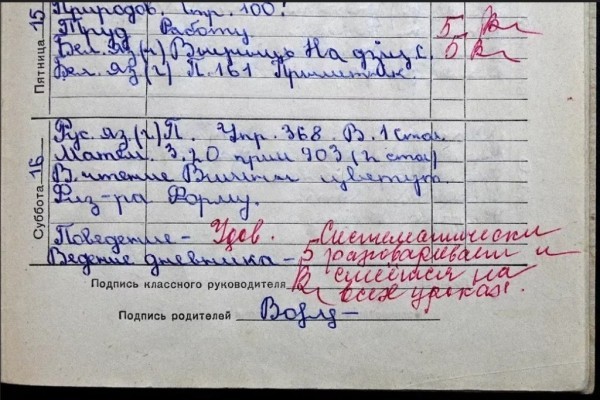 Природов. Стр. 100!
Пятница 15
Труд Работу 5
Бел. яз (ч) Вывучыць На дзіцс. 5
Бел. яз (г) П. 161 Прыметнік
Суббота 16
Рус. яз. (г) П. Упр. 368. В. 1 стол.
Матем. З. 20 прим 903 (2 стол)
В. чтение цветут.
Физ-ра Форму.
Поведение - Удов. Систематически
Ведение дневника - 5 разговаривает и
Подпись классного руководителя смеётся на
всех уроках.
Подпись родителей